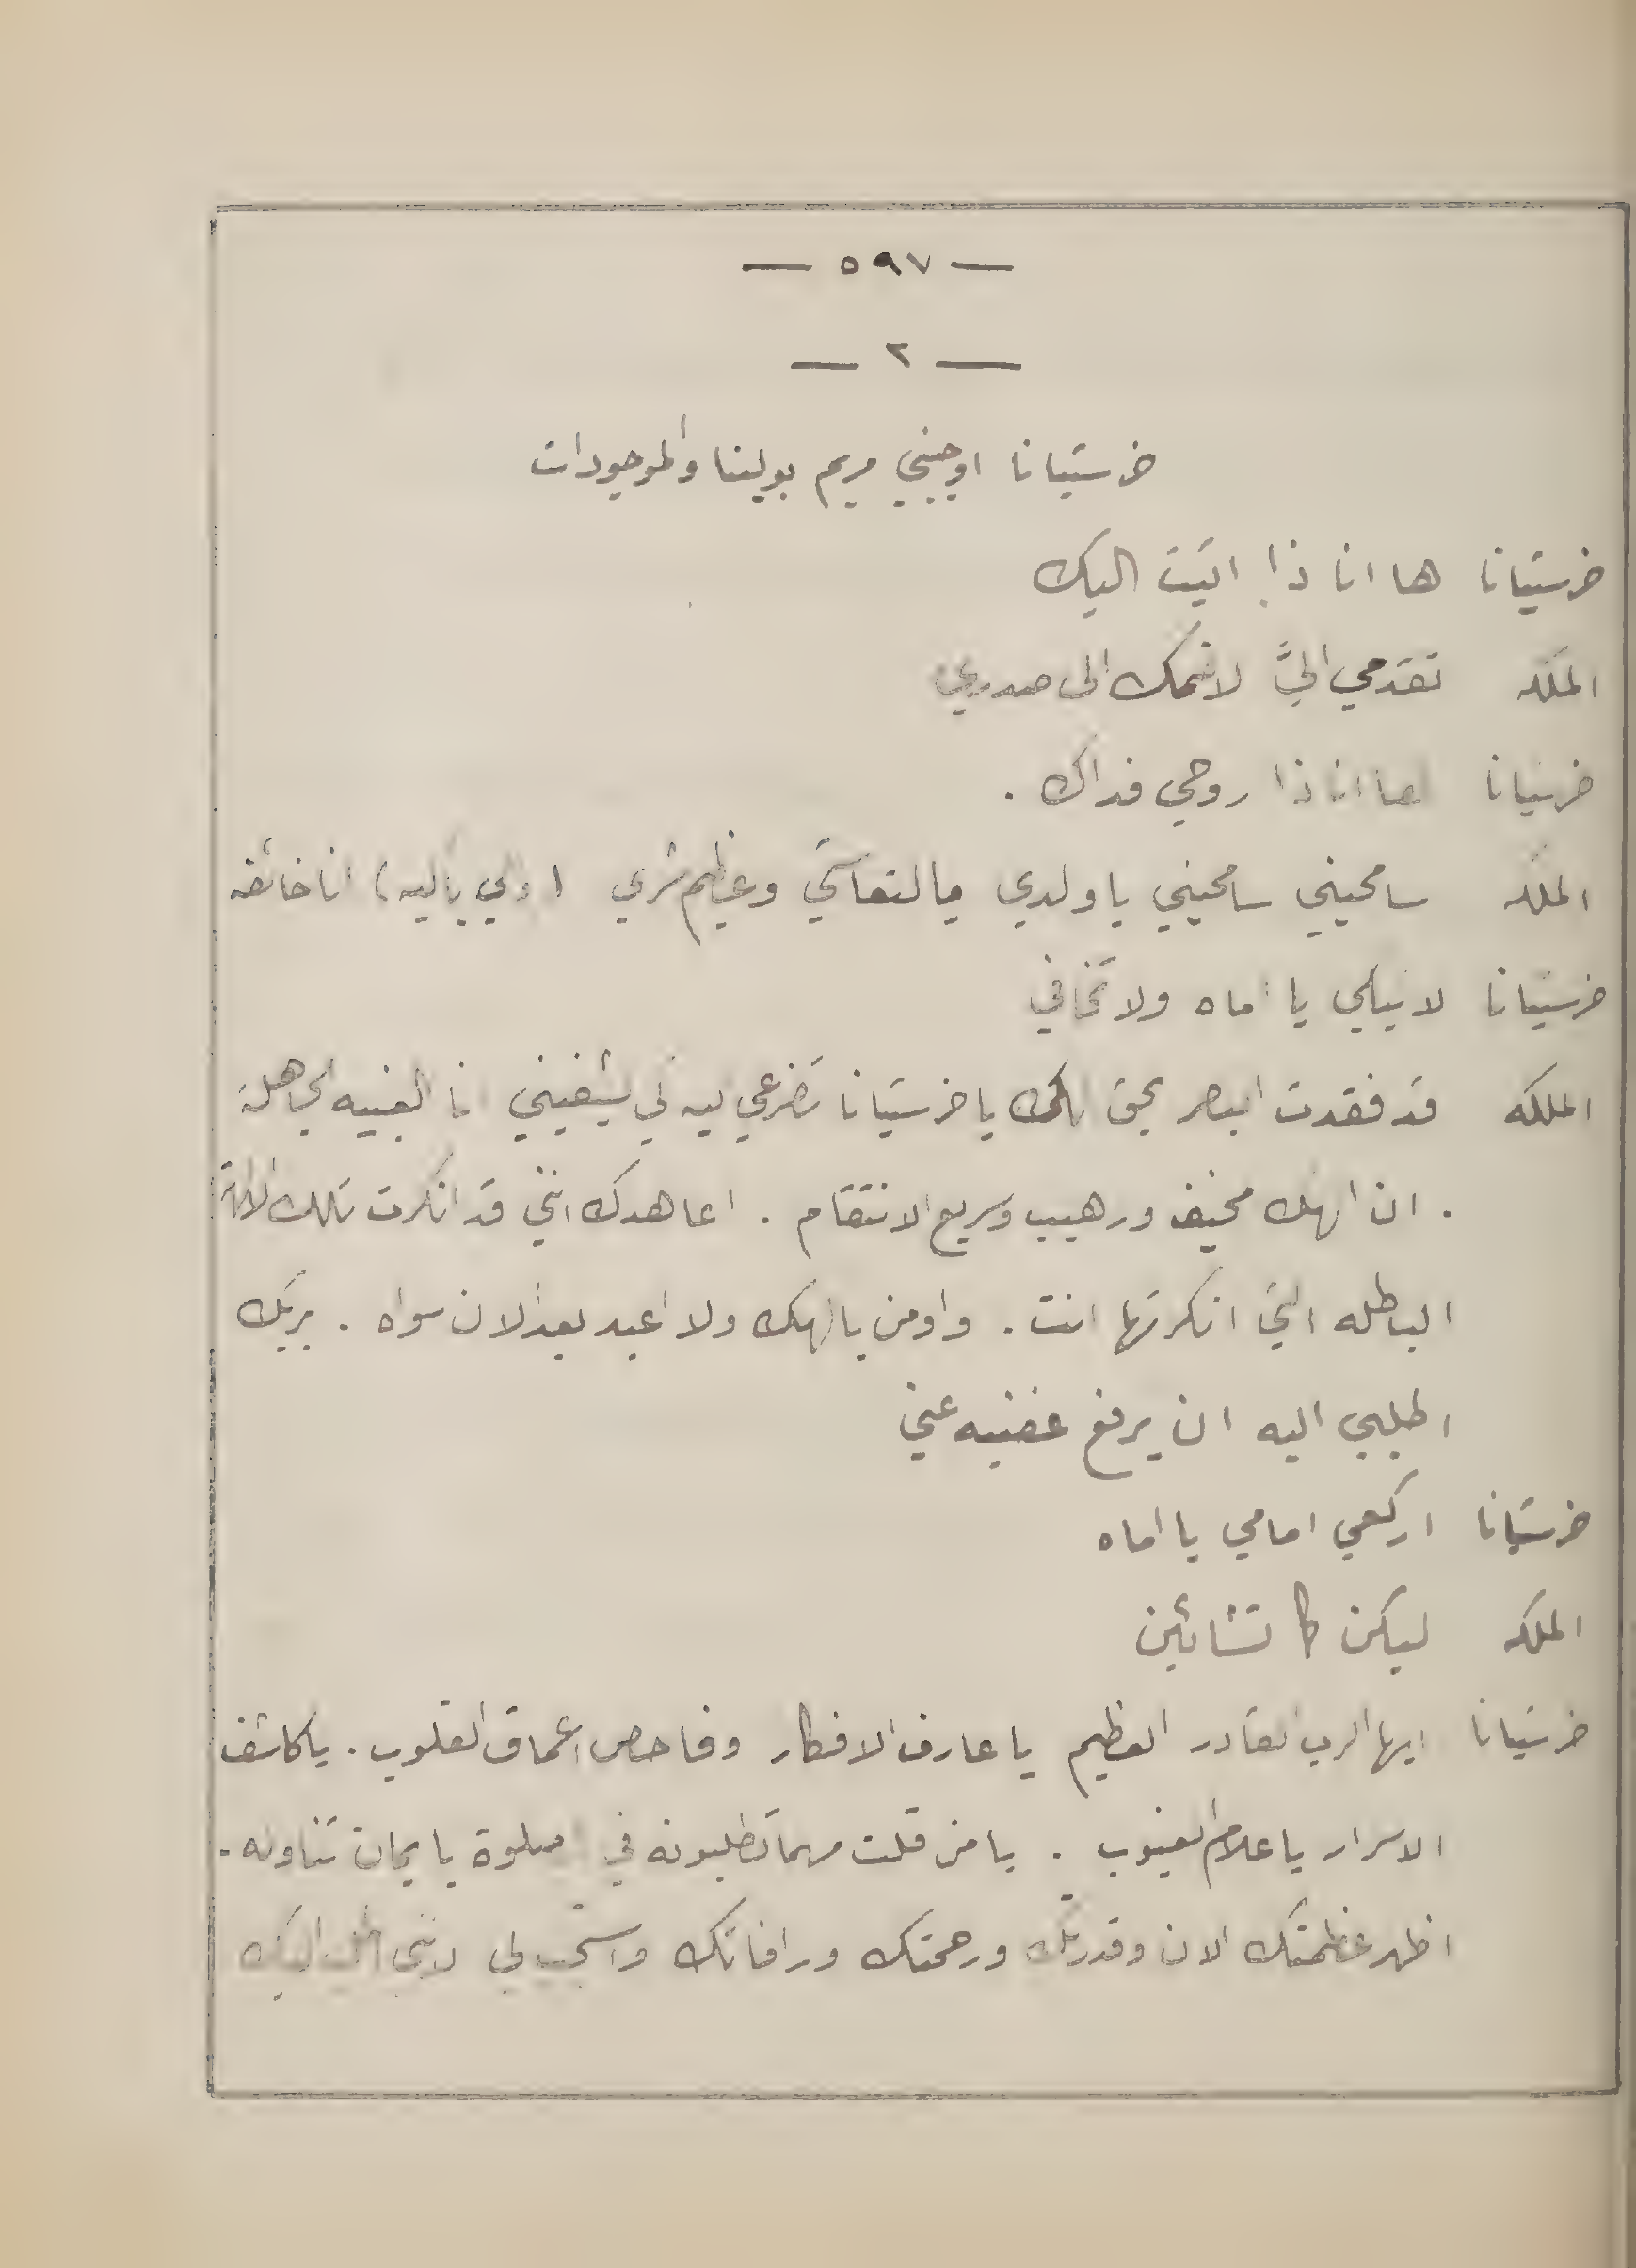 — ٥٩٧ —
— ٢ —
خرستيانا اوجيني مريم بولينا والموجودات
خرستيانا ها انا ذا اتيت اليك
الملكه تقدمي اليَّ لاضمك الى صدري
خرستيانا ها انا ذا روحي فداك .
الملكه سامحيني سامحيني يا ولدي يا لتعاستي وعظيم شري انا خائفه
خرستيانا لا تبكي يا اماه ولا تخافي
الملكه قد فقدت البصر بحق الهك يا خرستيانا تضرعي ليه لي يشفيني انا الغبيه الجاهلة
. ان الهك مخيف ورهيب وسريع الانتقام . اعاهدك انني قد انكرت تلك الالهة
الباطله التي انكرتها انت . واومن بالهك ولا اعبد بعد الان سواه . بربك
اطلبي اليه ان يرفع غضبه عني
خرستيانا اركعي امامي يا اماه
الملكه ليكن كما تشائين
خرستيانا ايها الرب القادر العظيم يا عارف الافكار وفاحص اعماق القلوب . يا كاشف
الاسرار يا علام الغيوب . يا من قلت مهما تطلبونه في الصلوة بايمان تنالونه .
اظهر عظمتك الان وقدرتك ورحمتك ورافاتك واستجب لي لانني اليك